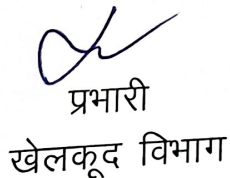 प्रभारी
खेलकूद विभाग